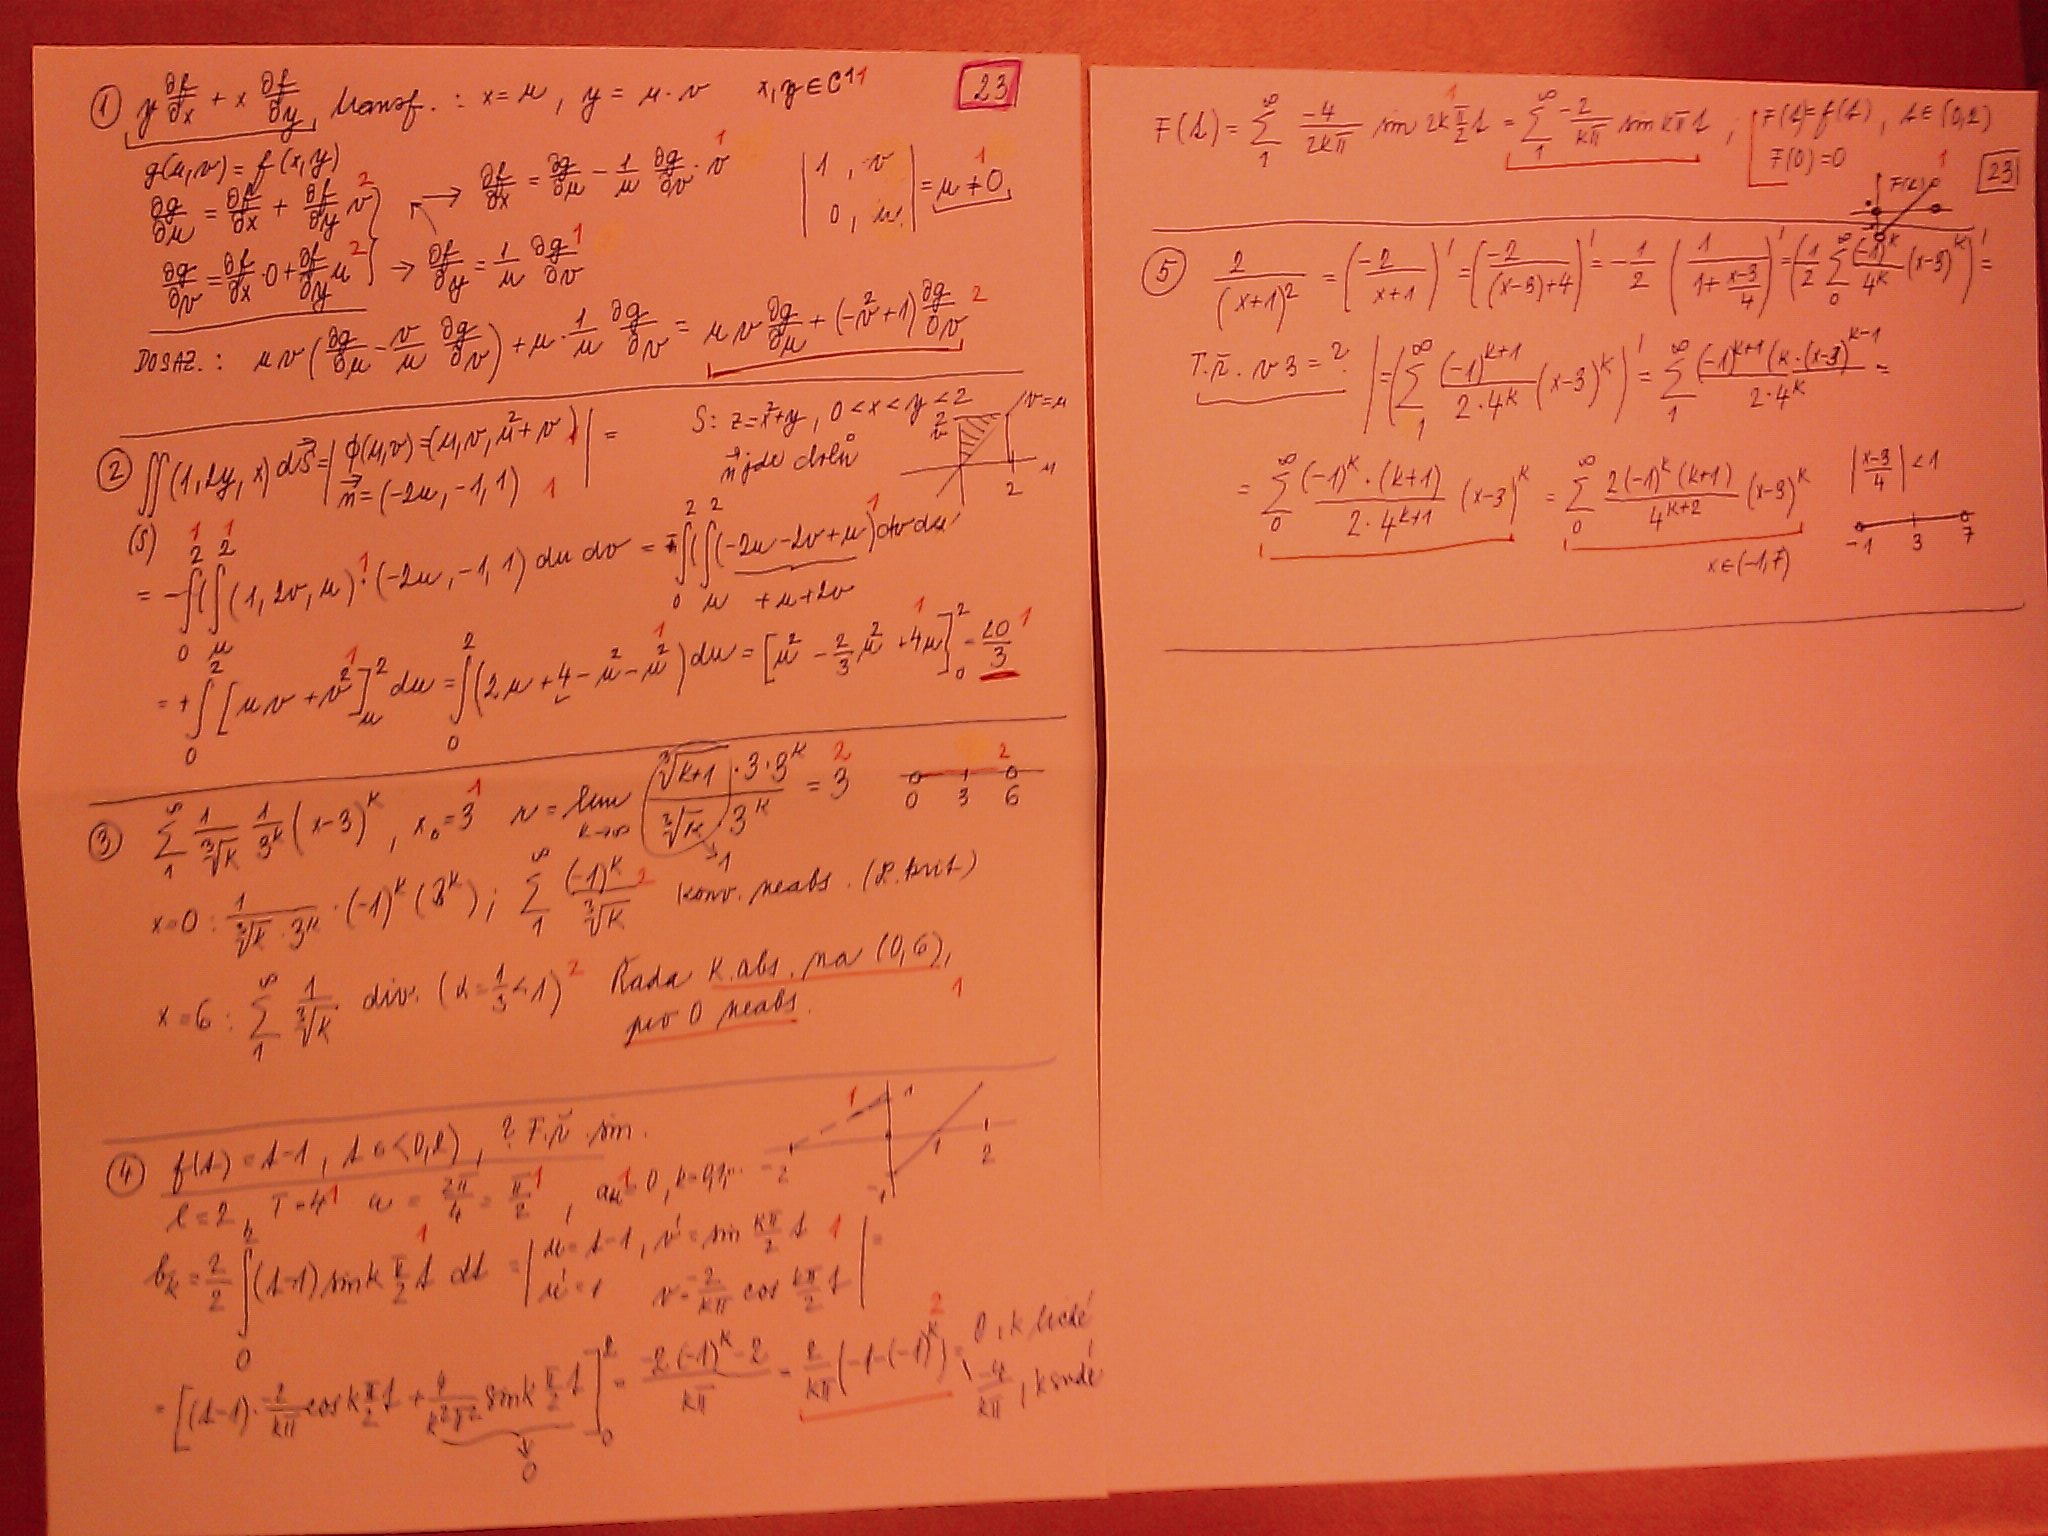 ① y ∂f/∂x + x ∂f/∂y, transf. : x = u, y = u·v x, y ∈ C¹ 1
23
g(u,v) = f(x,y)
∂g/∂u = ∂f/∂x + ∂f/∂y v 2 → ∂f/∂x = ∂g/∂u - 1/u ∂g/∂v · v 1 | 1, v ; 0, u | = u ≠ 0, 1
∂g/∂v = ∂f/∂x · 0 + ∂f/∂y u 2 → ∂f/∂y = 1/u ∂g/∂v 1
DOSAZ. : u v (∂g/∂u - v/u ∂g/∂v) + u · 1/u ∂g/∂v = u v ∂g/∂u + (-v² + 1) ∂g/∂v 2
② ∬ (1, 2y, x) dS⃗ = | ϕ(u,v) = (u, v, u² + v) 1 | = S: z = x² + y, 0 < x < y < 2 2 v v = u
(S) n⃗ = (-2u, -1, 1) 1 n⃗ jde dolů u 2
= - ∫₀² (∫ᵤ² (1, 2v, u) · (-2u, -1, 1) du dv = - ∫₀² (∫ᵤ² (-2u - 2v + u) dv du 1
+ u + 2v
= + ∫₀² [uv + v²]ᵤ² du = ∫₀² (2u + 4 - u² - u²) du = [u² - 2/3 u² + 4u]₀² = 20/3 1
③ ∑₁^∞ 1/∛k 1/3ᵏ (x-3)ᵏ, x₀ = 3 1 r = lim k→∞ ∛(k+1) · 3 · 3ᵏ / ∛k 3ᵏ = 3 2 0 3 6 2
→ 1
x = 0 : 1/(∛k · 3ᵏ) · (-1)ᵏ (3ᵏ) ; ∑₁^∞ (-1)ᵏ/∛k 2 konv. neabs. (L. krit)
x = 6 : ∑₁^∞ 1/∛k div. (α = 1/3 < 1) 2 Řada k. abs. na (0,6),
pro 0 neabs. 1
④ f(t) = t-1, t ∈ <0,2), ? F. ř. sin. 1 1 -2 1 2 -1
l = 2, T = 4 1 ω = 2π/4 = π/2 1, aₖ = 0, k = 0,1,.. 1
bₖ = 2/2 ∫₀² (t-1) sin k π/2 t dt 1 = | u = t-1, v' = sin kπ/2 t 1 | =
u' = 1 v = -2/kπ cos kπ/2 t
= [(t-1) · -2/kπ cos k π/2 t + 4/k²π² sin k π/2 t]₀² = (-2(-1)ᵏ - 2)/kπ = 2/kπ (-1-(-1)ᵏ) 2 = 0, k liché
→ 0 -4/kπ, k sudé
F(t) = ∑₁^∞ -4/2kπ sin 2k π/2 t 1 = ∑₁^∞ -2/kπ sin kπt ; F(t) = f(t), t ∈ (0,2)
F(0) = 0
F(t) 1
23
⑤ 2/(x+1)² = (-2/(x+1))' = (-2/((x-3)+4))' = -1/2 (1/(1+(x-3)/4))' = (-1/2 ∑₀^∞ (-1)ᵏ/4ᵏ (x-3)ᵏ)' =
T. ř. v 3 = ? | = (∑₁^∞ (-1)ᵏ⁺¹/(2·4ᵏ) (x-3)ᵏ)' = ∑₁^∞ (-1)ᵏ⁺¹ (k·(x-3)ᵏ⁻¹/(2·4ᵏ) =
= ∑₀^∞ (-1)ᵏ · (k+1)/(2·4ᵏ⁺¹) (x-3)ᵏ = ∑₀^∞ 2(-1)ᵏ (k+1)/4ᵏ⁺² (x-3)ᵏ |(x-3)/4| < 1
x ∈ (-1,7) -1 3 7